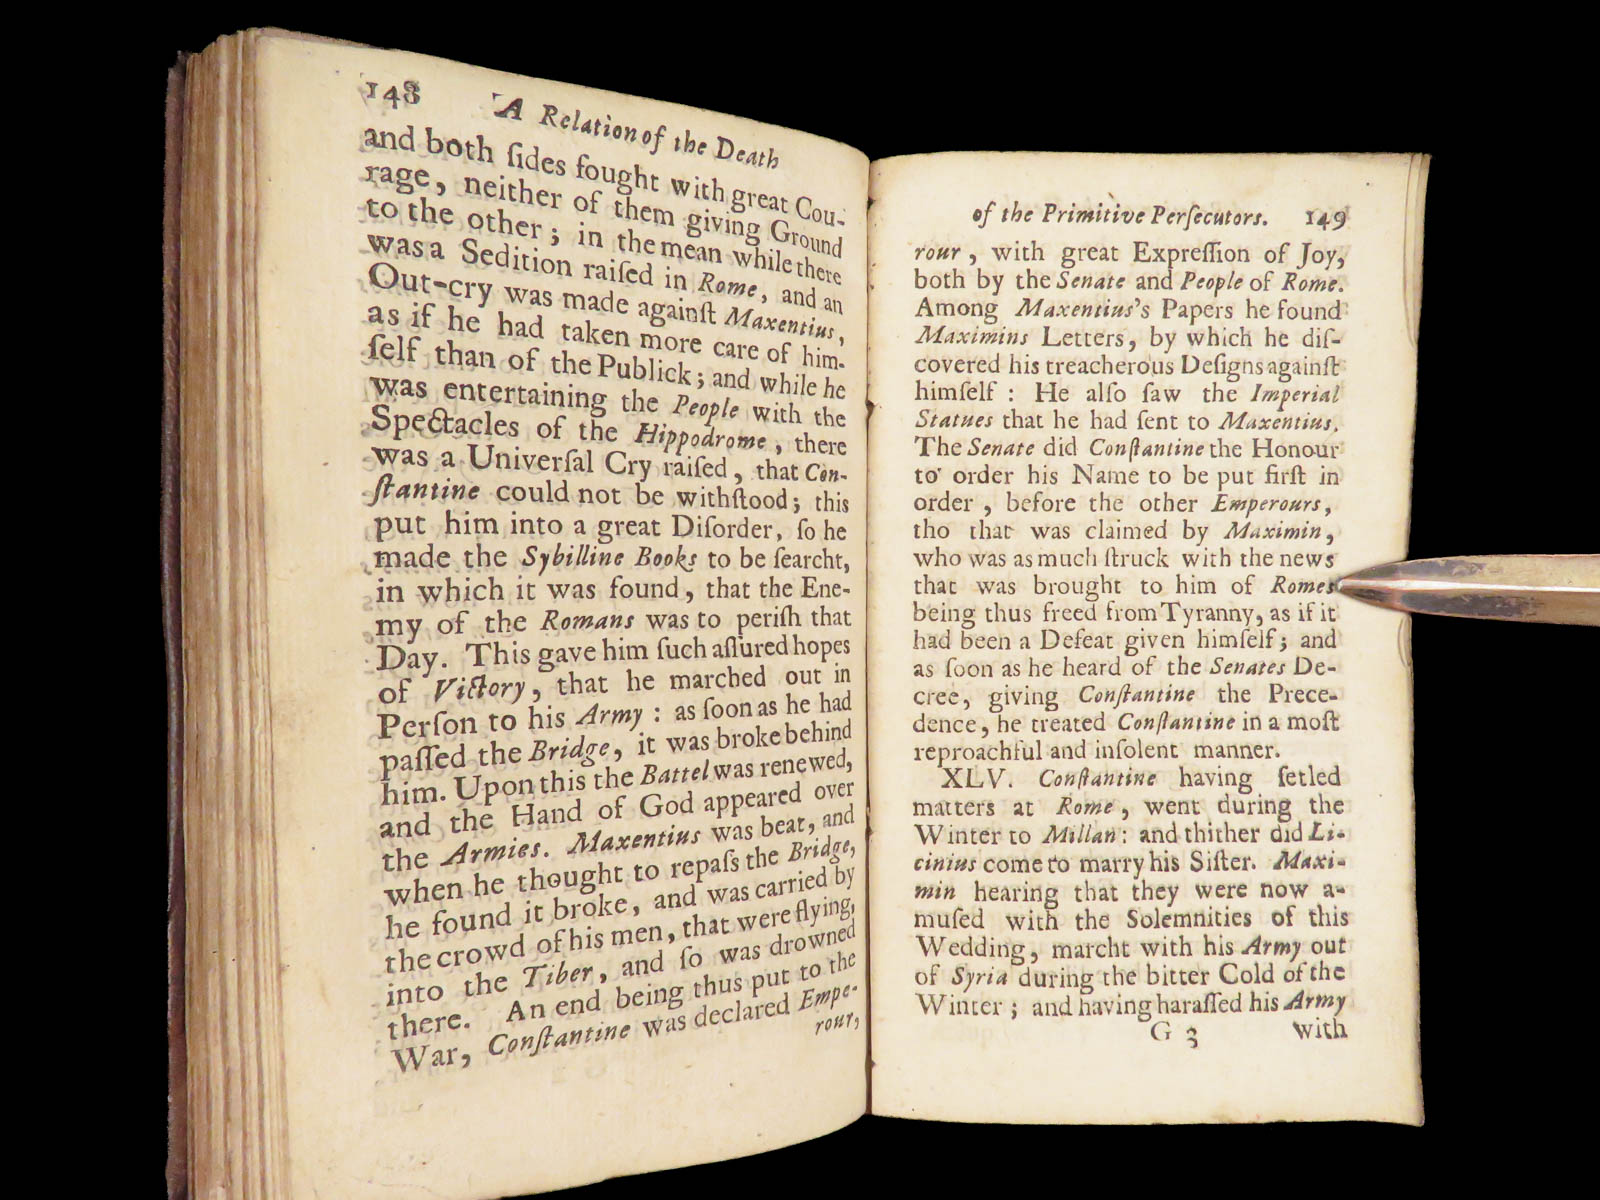 148 A Relation of the Death
and both ſides fought with great Cou-
rage, neither of them giving Ground
to the other; in the mean while there
was a Sedition raiſed in Rome, and an
Out-cry was made againſt Maxentius,
as if he had taken more care of him-
ſelf than of the Publick; and while he
was entertaining the People with the
Spectacles of the Hippodrome, there
was a Univerſal Cry raiſed, that Con-
ſtantine could not be withſtood; this
put him into a great Diſorder, ſo he
made the Sybilline Books to be ſearcht,
in which it was found, that the Ene-
my of the Romans was to periſh that
Day. This gave him ſuch aſſured hopes
of Victory, that he marched out in
Perſon to his Army: as ſoon as he had
paſſed the Bridge, it was broke behind
him. Upon this the Battel was renewed,
and the Hand of God appeared over
the Armies. Maxentius was beat, and
when he thought to repaſs the Bridge,
he found it broke, and was carried by
the crowd of his men, that were flying,
into the Tiber, and ſo was drowned
there. An end being thus put to the
War, Conſtantine was declared Empe-
rour,
of the Primitive Perſecutors. 149
rour, with great Expreſſion of Joy,
both by the Senate and People of Rome.
Among Maxentius's Papers he found
Maximins Letters, by which he diſ-
covered his treacherous Deſigns againſt
himſelf: He alſo ſaw the Imperial
Statues that he had ſent to Maxentius.
The Senate did Conſtantine the Honour
to order his Name to be put firſt in
order, before the other Emperours,
tho that was claimed by Maximin,
who was as much ſtruck with the news
that was brought to him of Romes
being thus freed from Tyranny, as if it
had been a Defeat given himſelf; and
as ſoon as he heard of the Senates De-
cree, giving Conſtantine the Prece-
dence, he treated Conſtantine in a moſt
reproachful and inſolent manner.
XLV. Conſtantine having ſetled
matters at Rome, went during the
Winter to Millan: and thither did Li-
cinius come to marry his Siſter. Maxi-
min hearing that they were now a-
muſed with the Solemnities of this
Wedding, marcht with his Army out
of Syria during the bitter Cold of the
Winter; and having haraſſed his Army
G 3 with